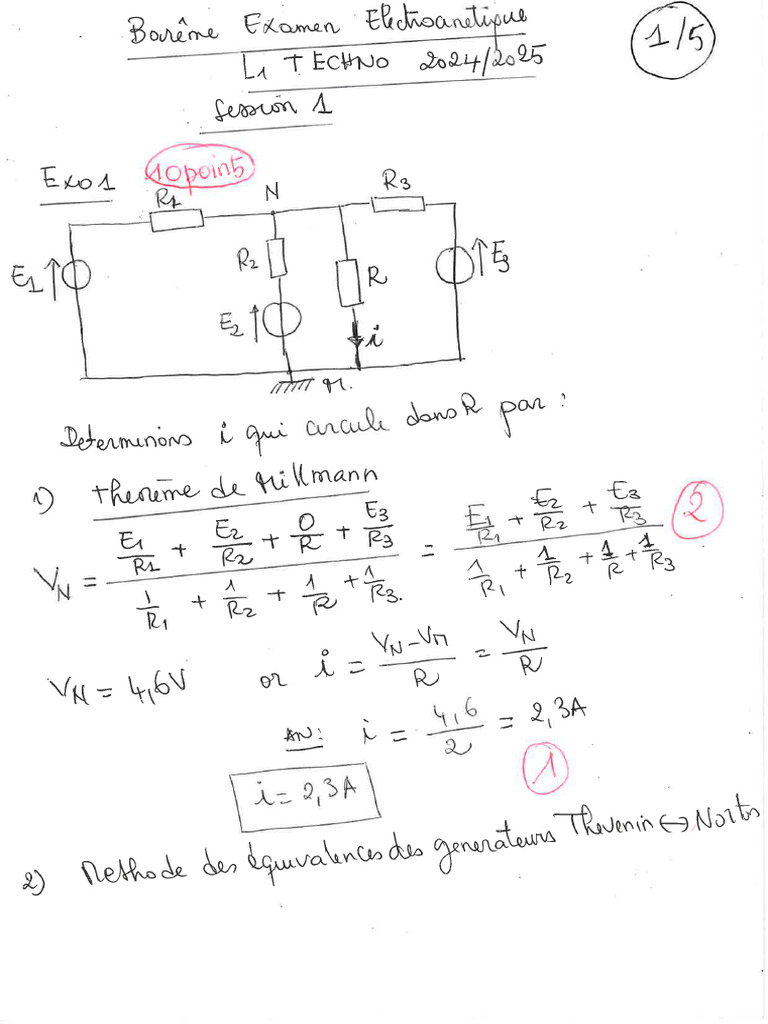 Barême Examen Electrocinetique
1/5
L1 TECHNO 2024/2025
Session 1
Exo1 10points
R1 N R3
E1 R2 R E3
E2 i
M.
Determinons i qui circule dans R par :
1) theorème de Millmann
V_N = (E1/R1 + E2/R2 + 0/R + E3/R3) / (1/R1 + 1/R2 + 1/R + 1/R3.) = (E1/R1 + E2/R2 + E3/R3) / (1/R1 + 1/R2 + 1/R + 1/R3) 2
V_N = 4,6V or i = (V_N - V_M)/R = V_N/R
AN: i = 4,6/2 = 2,3A
1
i = 2,3A
2) Methode des équivalences des generateurs Thevenin ↔ Norton